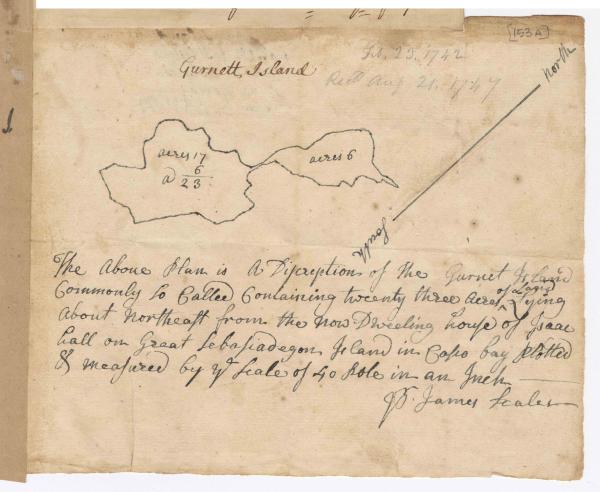 [153A]
Feb. 25. 1742
Gurnett Island
Recd Aug 21. 1747
North
acres 17
6
a 23
acres 6
South
The Above Plan is A Discreptions of the Gurnet Island
Commonly So Called Containing twenty three acres of Land Lying
About Northeast from the now Dweeling house of Isaac
hall on Great Sebasiadegon Island in Casco bay plotted
& measured by ye Scale of 40 Role in an Inch
Pr. James Scales